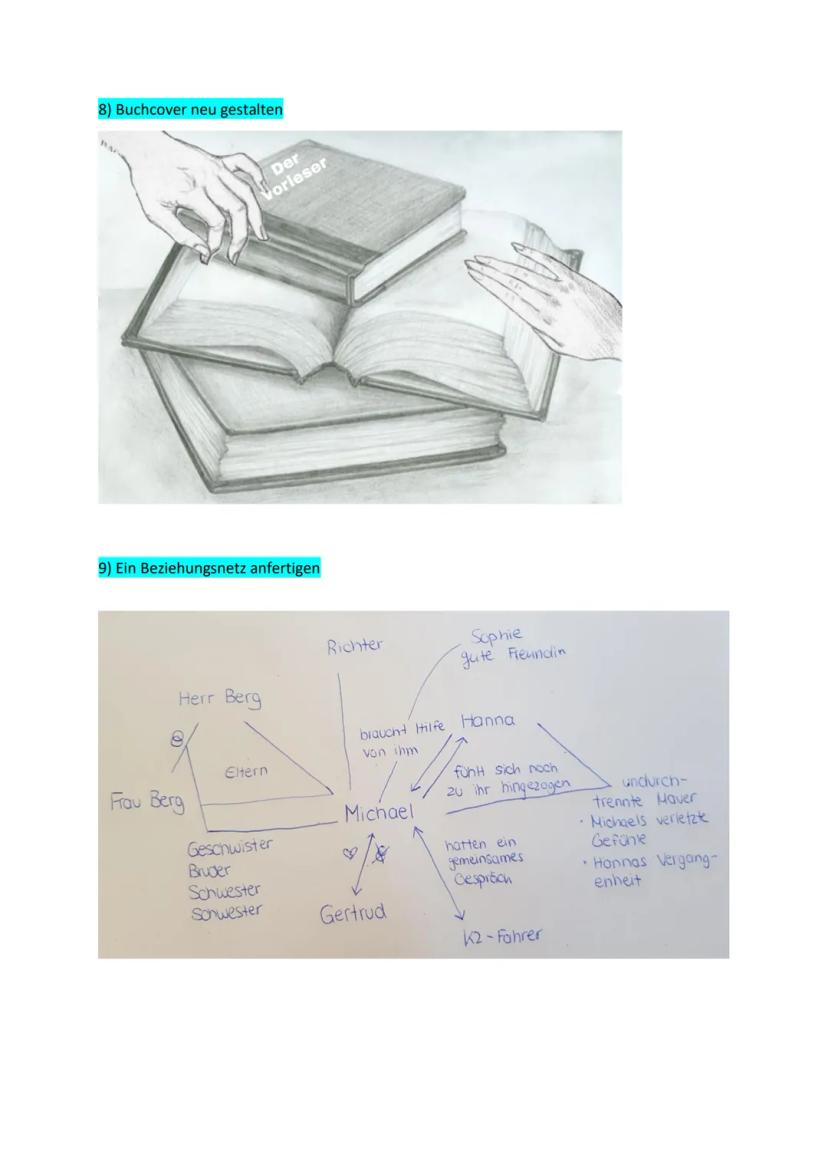 8) Buchcover neu gestalten
Der
Vorleser
9) Ein Beziehungsnetz anfertigen
Richter
Sophie
gute Freundin
Herr Berg
braucht Hilfe
von ihm
Hanna
Eltern
fühlt sich noch
zu ihr hingezogen
Frau Berg
Michael
undurch-
trennte Mauer
• Michaels verletzte
Gefühle
• Hannas Vergang-
enheit
Geschwister
Bruder
Schwester
Schwester
hatten ein
gemeinsames
Gespräch
Gertrud
KZ-Fahrer